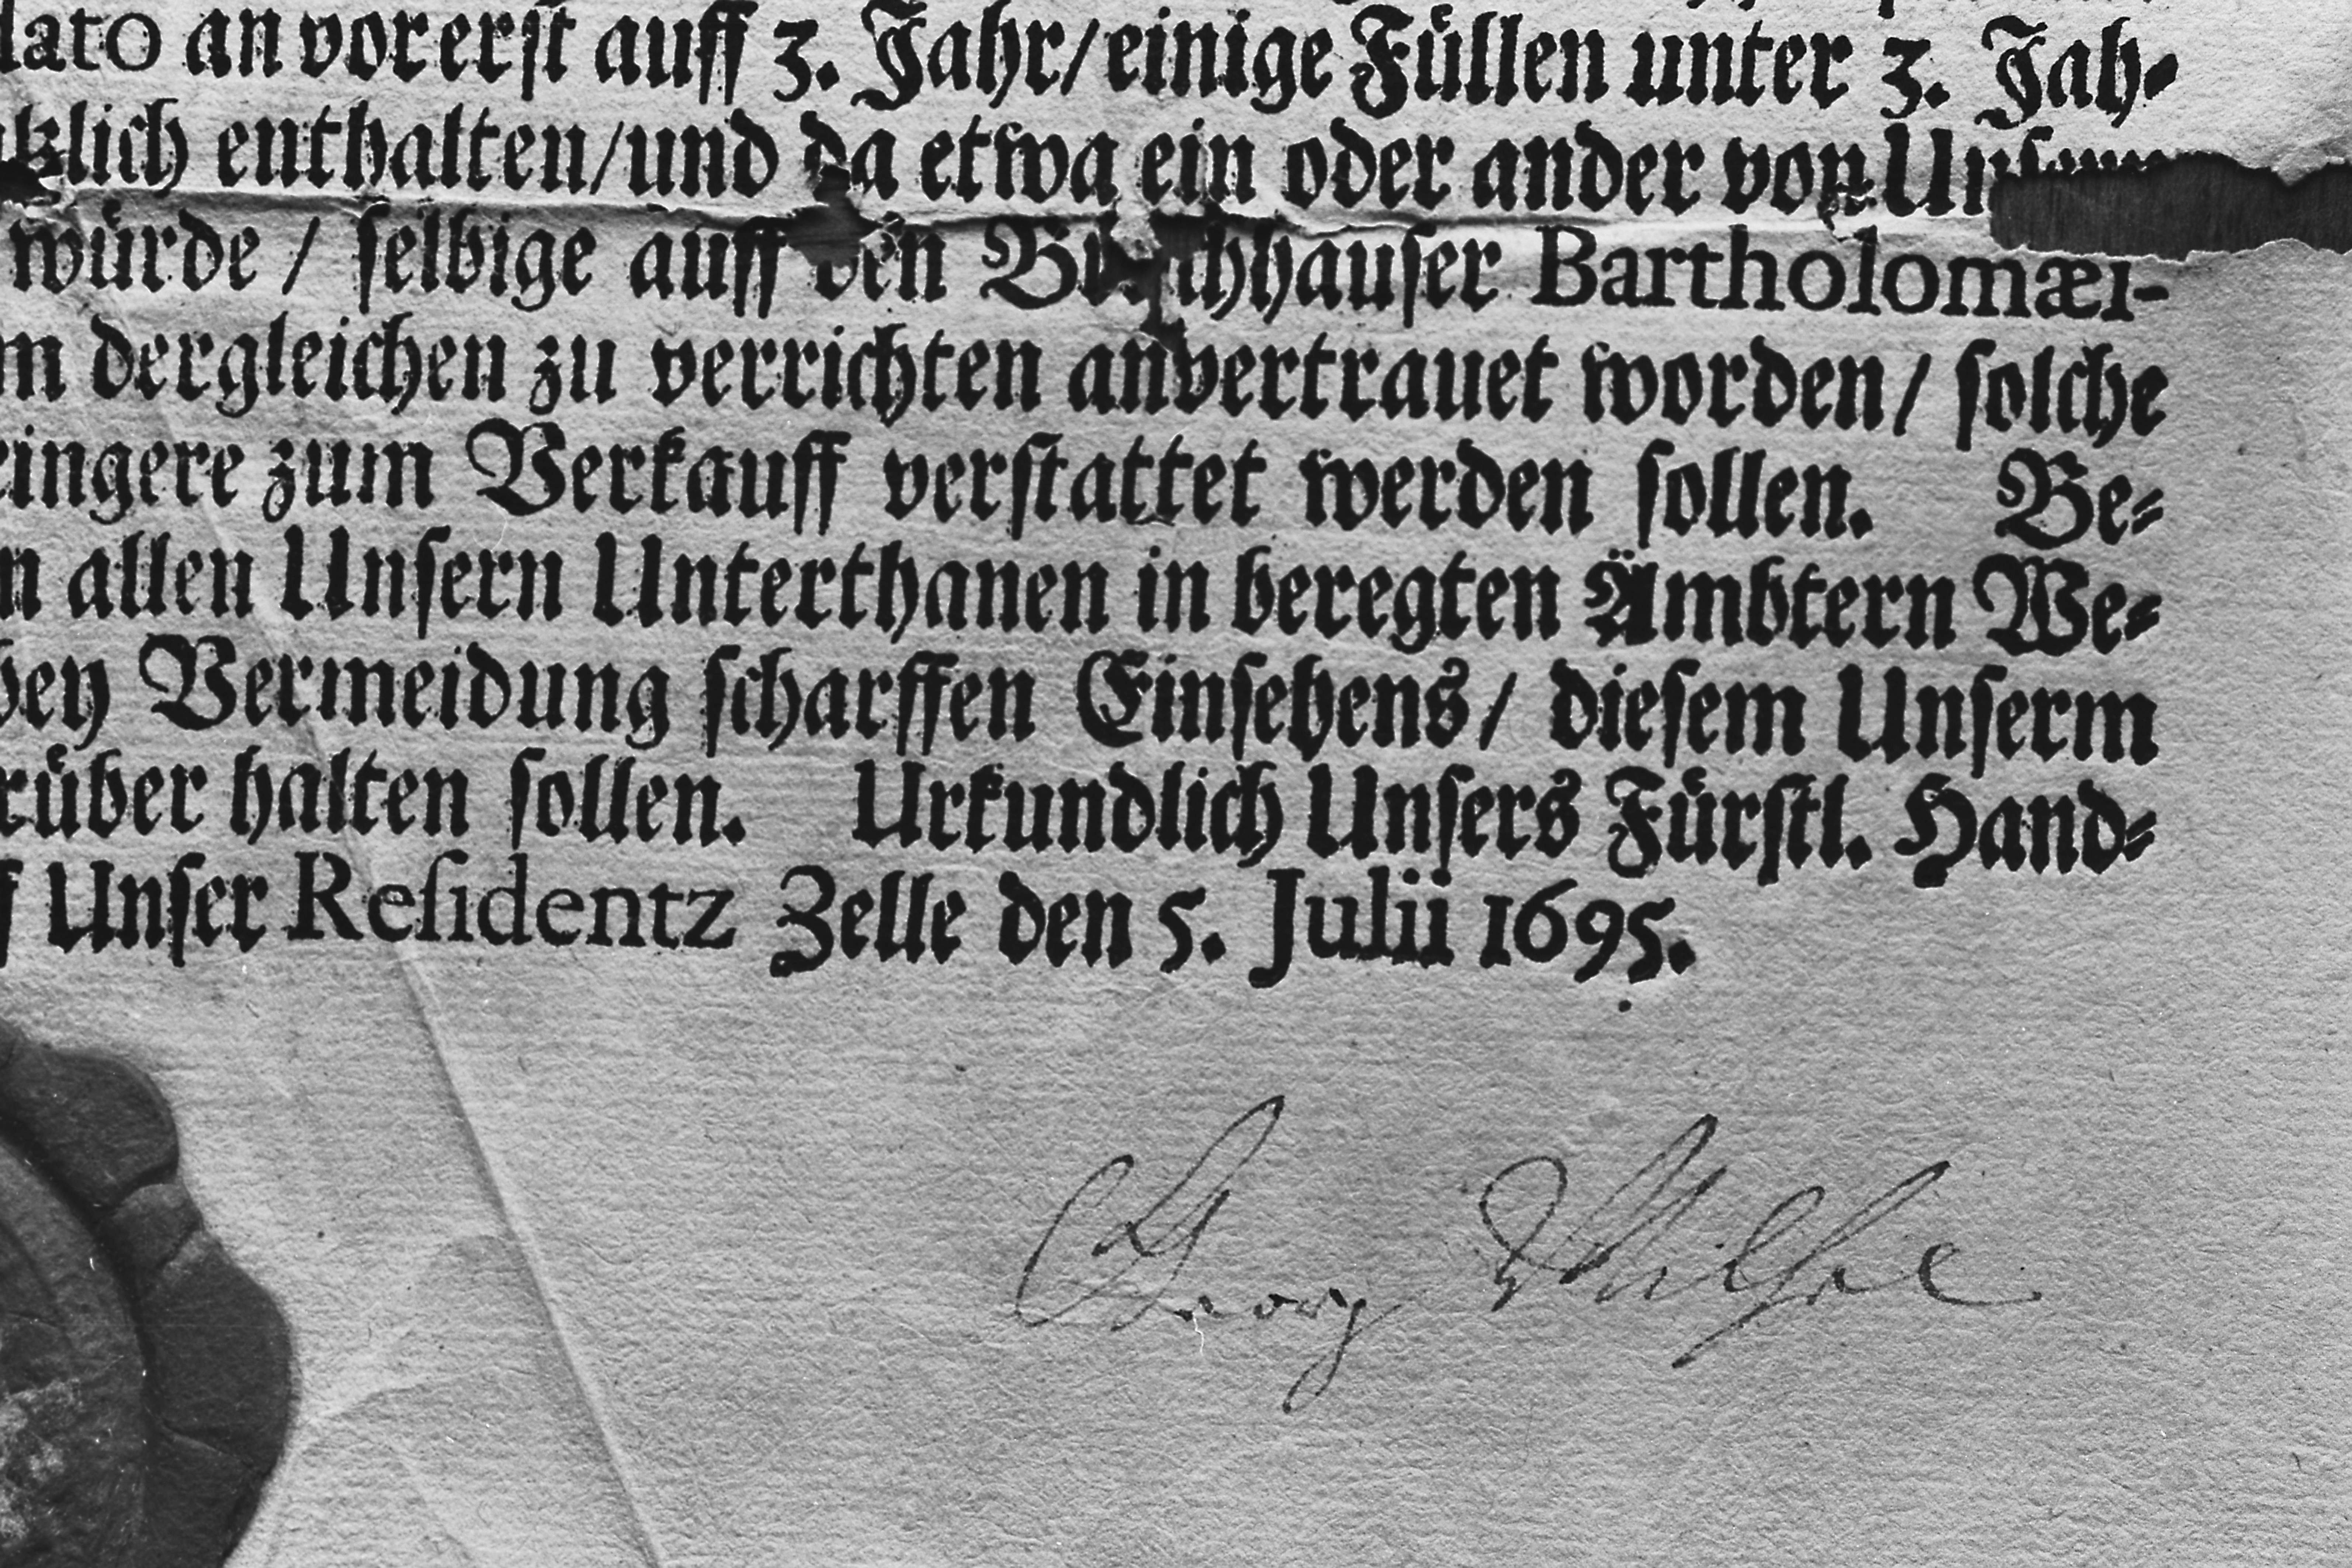 lato an vorerst auff 3. Jahr/ einige Füllen unter 3. Jah-
lich enthalten/ und da etwa ein oder ander von Unsern
würde / selbige auff den Bi chhauser Bartholomæi-
m dergleichen zu verrichten anvertrauet worden/ solche
ringere zum Verkauff verstattet werden sollen. Be-
n allen Unsern Unterthanen in beregten Ämbtern We-
bey Vermeidung scharffen Einsehens/ diesem Unserm
rüber halten sollen. Urkundlich Unsers Fürstl. Hand-
f Unser Residentz Zelle den 5. Julii 1695.
Georg Wilhelm